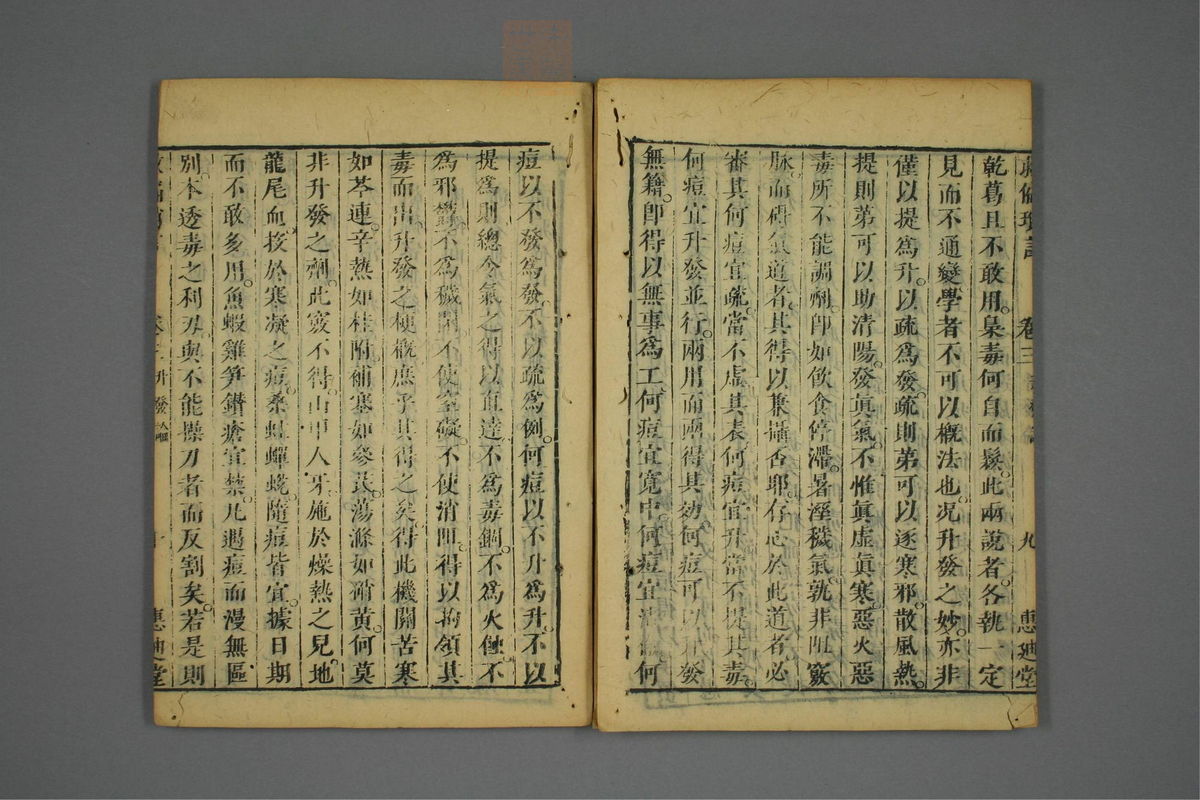 卷三
九
惠迪堂
乾葛且不敢用梟毒何自而鬆此兩說者各執一定
見而不通變學者不可以概法也况升發之妙亦非
僅以提為升以疏為發疏則第可以逐寒邪散風熱
提則第可以助清陽發眞氣不惟眞虛眞寒惡火惡
毒所不能調劑卽如飲食停滯暑溼穢氣孰非阻竅
脉而礙氣道者其得以兼攝否耶存心於此道者必
審其何痘宜疏當不虛其表何痘宜升當不提其毒
何痘宜升發並行兩用而兩得其効何痘可以升發
無籍卽得以無事為工何痘宜寛中何痘宜 何
痘以不發為發不以疏為例何痘以不升為升不以
提為則總令氣之得以直達不為毒錮不為火 不
為邪鬱不為穢 不使窒礙不使消阻得以拘領其
毒而出升發之梗概庶乎其得之矣得此機關苦寒
如芩連辛熱如桂附補塞如參芪蕩滌如硝黃何莫
非升發之劑此竅不得山甲人牙施於燥熱之兒地
龍尾血投於寒凝之痘桑蛀蟬蛻隨痘皆宜據日期
而不敢多用魚蝦雞笋鑽瘡宜禁凡遇痘而漫無區
別本透毒之利刃與不能操刀者而反割矣若是則
升發
惠迪堂